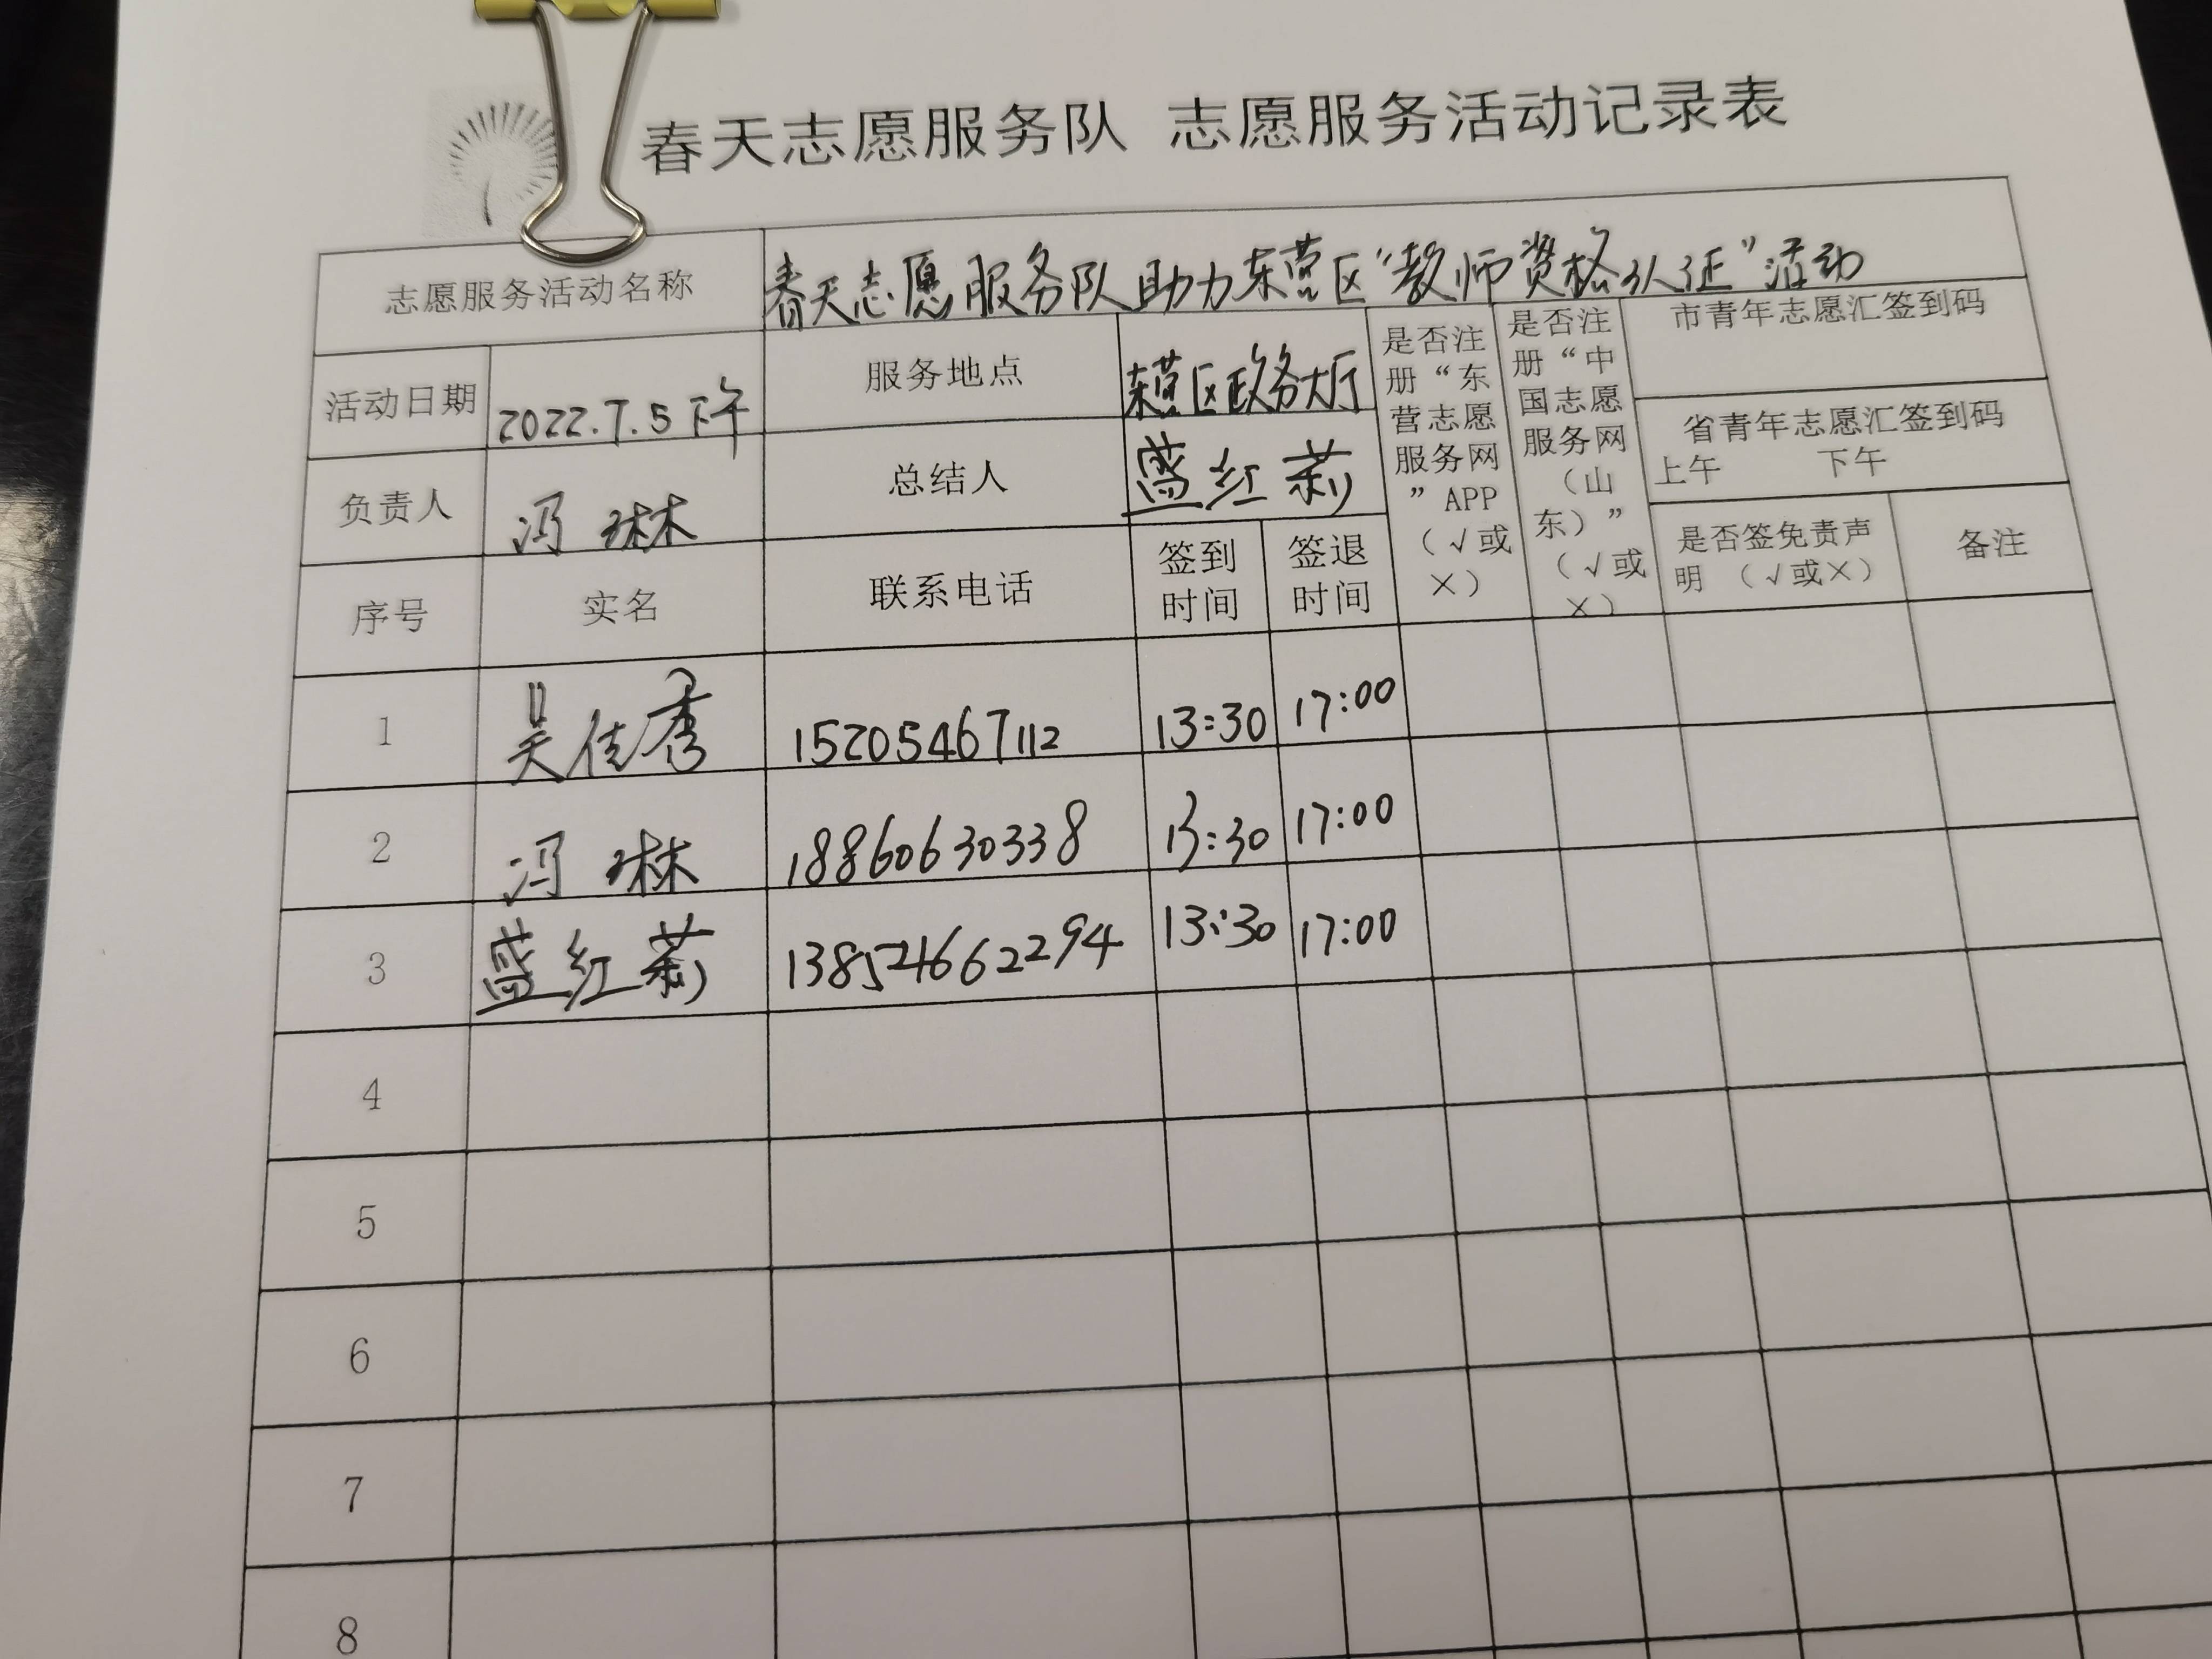 春天志愿服务队 志愿服务活动记录表
志愿服务活动名称 春天志愿服务队助力东营区“教师资格认证”活动
活动日期 2022.7.5下午 服务地点 东营区政务大厅
是否注册“东营志愿服务网”APP（√或×）
是否注册“中国志愿服务网（山东）”（√或×）
市青年志愿汇签到码
省青年志愿汇签到码
上午 下午
负责人 冯琳 总结人 蓝红莉
序号 实名 联系电话 签到时间 签退时间 是否签免责声明（√或×） 备注
1 吴佳秀 15205467112 13:30 17:00
2 冯琳 18860630338 13:30 17:00
3 蓝红莉 13:30 17:00
4
5
6
7
8